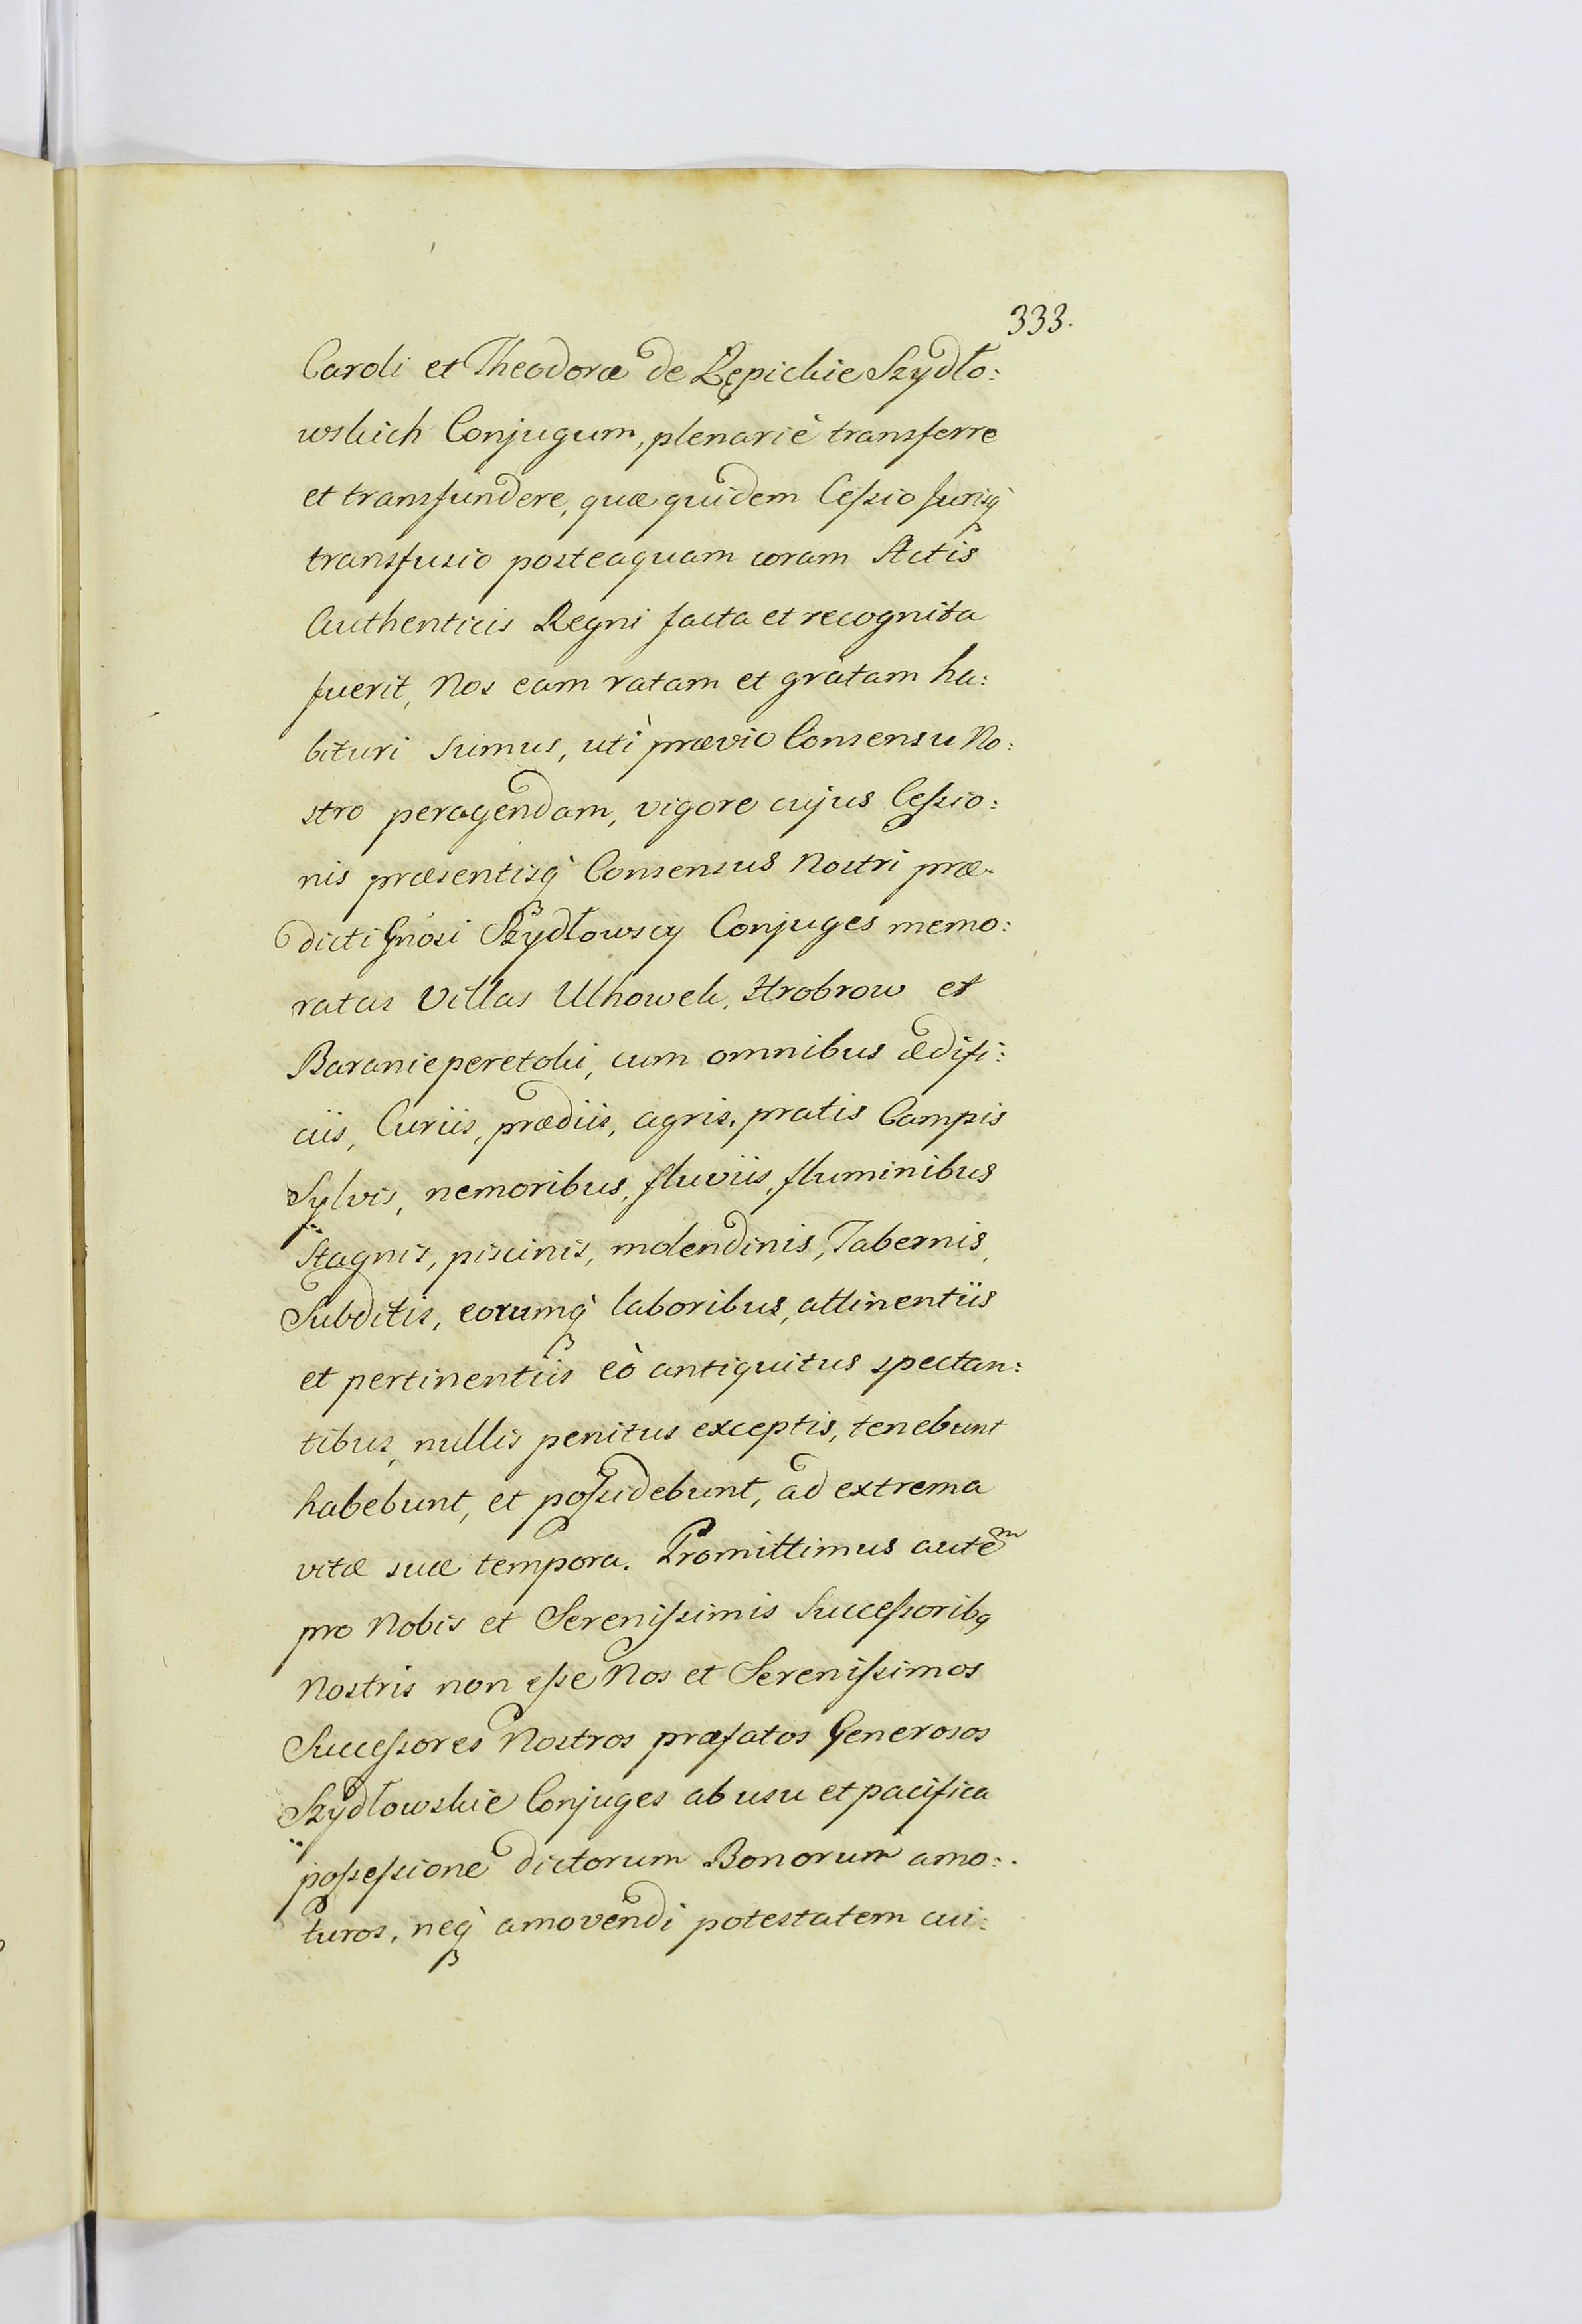 333.
Caroli et Theodoræ de Rępickie Szydło:
wskich Conjugum, plenariè transferre
et transfundere, quæ quidem Cessio Jurisq̀
transfusio posteaquam coram Actis
Authenticis Regni facta et recognita
fuerit, Nos eam ratam et gratam ha:
bituri sumus, utì prævio Consensu No:
stro peragendam, vigore cujus Cessio:
nis præsentisq̀ Consensus Nostri præ-
dicti Gnosi Szydłowscy Conjuges memo:
ratas Villas Uhowek, Strobrow et
Baranieperetoki, cum omnibus ædifi:
ciis, Curiis, prædiis, agris, pratis Campis
Sylvis, nemoribus, fluviis, fluminibus
Stagnis, piscinis, molendinis, Tabernis,
Subditis, eorumq̀ laboribus, attinentiis
et pertinentiis eò antiquitus spectan:
tibus, nullis penitus exceptis, tenebunt
habebunt, et possidebunt, ad extrema
vitæ suæ tempora. Promittimus autem
pro Nobis et Serenissimis Successoribq
Nostris non esse Nos et Serenissimos
Successores Nostros præfatos Generosos
Szydłowskie Conjuges ab usu et pacifica
possessione dictorum Bonorum amo:
turos, neq̀ amovendi potestatem cui: